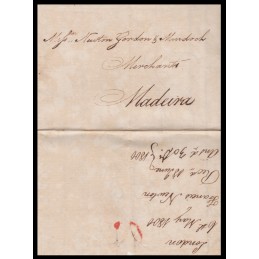 Messrs Newton Gordon & Murdoch
Merchants
Madeira
London
6th May 1801
Francis Newton
Recd 10 June
Ansd 30 Do 1801